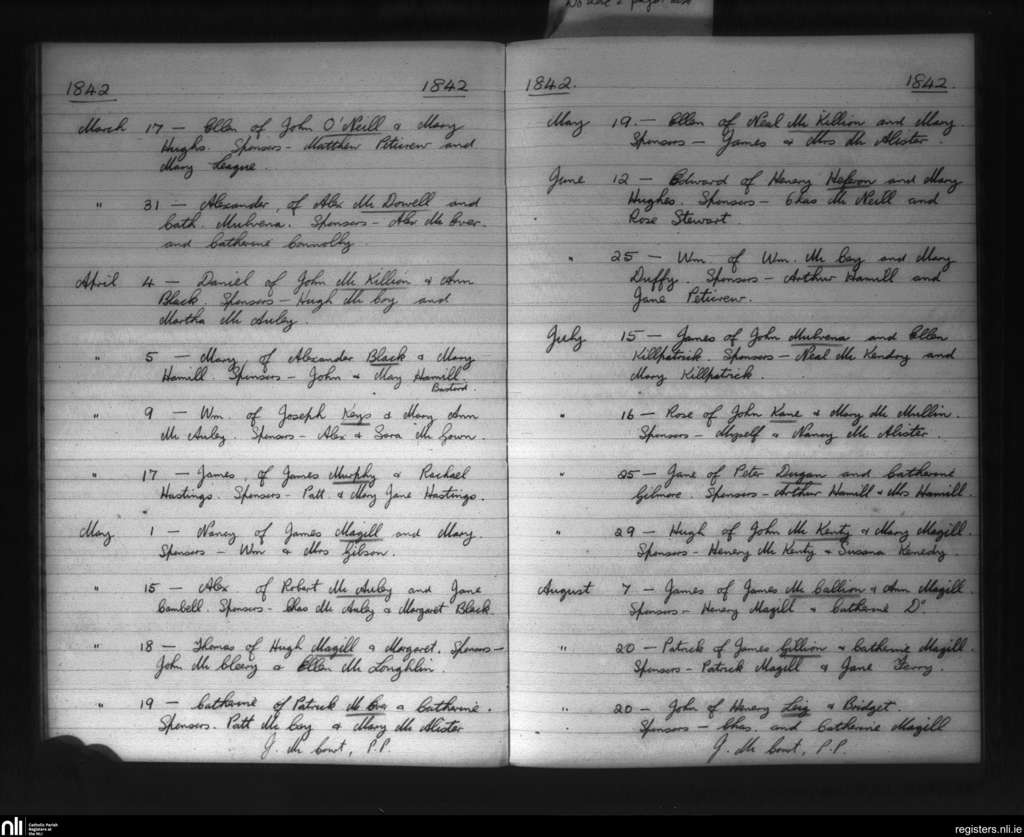 1842 1842
March 17 — Ellen of John O'Neill & Mary
Hughs. Sponsors - Matthew Peticrew and
Mary League.
" 31 — Alexander, of Alex Mc Dowell and
Cath. Mulvena. Sponsors - Alex Mc Iver
and Catherine Connolly.
April 4 — Daniel of John Mc Killion & Ann
Black. Sponsors - Hugh Mc Coy and
Martha Mc Auley.
" 5 — Mary of Alexander Black & Mary
Hamill. Sponsors - John & May Hamill.
Bastard.
" 9 — Wm. of Joseph Keys & Mary Ann
Mc Auley. Sponsors - Alex & Sara Mc Gown.
" 17 — James, of James Murphy & Rachael
Hastings. Sponsors - Patt. & Mary Jane Hastings.
May 1 — Nancy of James Magill and Mary.
Sponsors - Wm & Mrs Gibson.
" 15 — Alex of Robert Mc Auley and Jane
Cambell. Sponsors - Chas Mc Auley & Margaret Black.
" 18 — Thomas of Hugh Magill & Margaret. Sponsors -
John Mc Cleery & Ellen Mc Loughlin.
" 19 — Catherine of Patrick Mc & Catherine.
Sponsors. Patt Mc Coy & Mary Mc Alister
J. Mc Court, P.P.
1842. 1842.
May 19. — Ellen of Neal Mc Killion and Mary.
Sponsors - James & Mrs Mc Alister.
June 12 — Edward of Henery Heferon and Mary
Hughes. Sponsors - Chas Mc Neill and
Rose Stewart
" 25 — Wm. of Wm. Mc Coy and Mary
Duffy. Sponsors - Arthur Hamill and
Jane Peticrew.
July 15 — James of John Mulvena and Ellen
Killpatrick. Sponsors - Neal Mc Kendry and
Mary Killpatrick.
" 16 — Rose of John Kane & Mary Mc Mullin.
Sponsors - Myself & Nancy Mc Alister.
" 25 — Jane of Peter Dugan and Catherine
Gilmore. Sponsors - Arthur Hamill & Mrs Hamill.
" 29 — Hugh of John Mc Kenty & Mary Magill.
Sponsors - Henery Mc Kenty & Susana Kenedy.
August 7 — James of James Mc Callion & Ann Magill.
Sponsors - Henery Magill & Catherine Do
" 20 — Patrick of James Gillion & Catherine Magill.
Sponsors - Patrick Magill & Jane
" 20 — John of Henery & Bridget.
Sponsors - Chas. and Catherine Magill
J. Mc Court, P.P.
nli Catholic Parish
Registers at
the NLI
registers.nli.ie